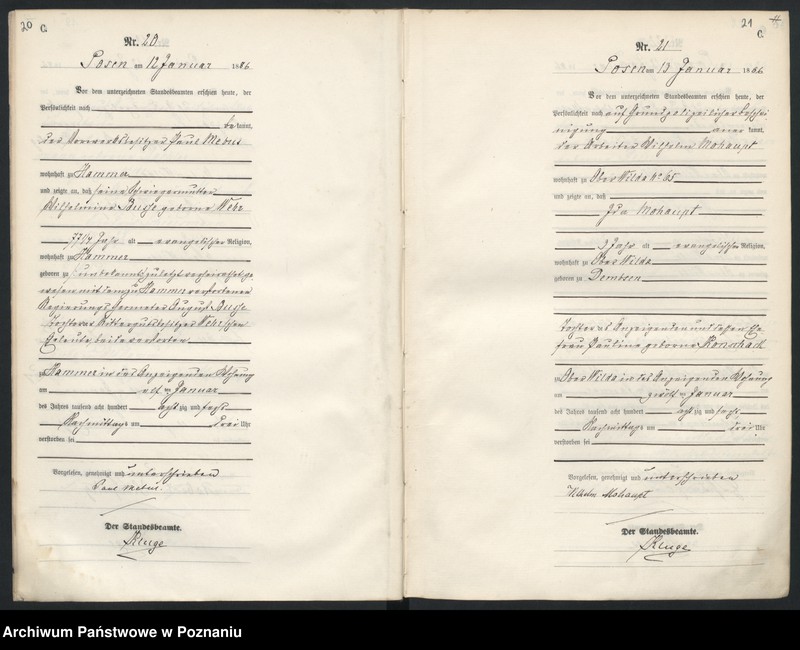 20 C.
Nr. 20
Posen am 12 Januar 1886
Vor dem unterzeichneten Standesbeamten erschien heute, der
Persönlichkeit nach
be kannt,
der Vorwerksbesitzer Paul Mebus
wohnhaft zu Hammer
und zeigte an, daß seine Schwiegermutter
Wilhelmine Busse geborne Wehr
Jahr alt evangelischer Religion,
wohnhaft zu Hammer
geboren zu unbekannt, zuletzt verheirathet ge
wesen mit dem zu Hammer verstorbenen
Regierungs Geometer August Busse
Tochter der Rittergutsbesitzer Wehr'schen
Eheleute, beide verstorben
zu Hammer in des Anzeigenden Wohnung
am Januar
des Jahres tausend acht hundert achtzig und sechs
Nachmittags um drei Uhr
verstorben sei
Vorgelesen, genehmigt und unterschrieben
Paul Mebus.
Der Standesbeamte.
Kluge
21 C.
Nr. 21
Posen am 13 Januar 1886
Vor dem unterzeichneten Standesbeamten erschien heute, der
Persönlichkeit nach auf Grund polizeilicher Beschei
nigung aner kannt,
der Arbeiter Wilhelm Mohaupt
wohnhaft zu Ober Wilda No 65
und zeigte an, daß
Ida Mohaupt
Jahr alt evangelischer Religion,
wohnhaft zu Ober Wilda
geboren zu Dembsen
Tochter des Anzeigenden und dessen Ehe
frau Pauline geborne
zu Ober Wilda in des Anzeigenden Wohnung
am zwölf ten Januar
des Jahres tausend acht hundert achtzig und sechs
Nachmittags um drei Uhr
verstorben sei
Vorgelesen, genehmigt und unterschrieben
Wilhelm Mohaupt
Der Standesbeamte.
Kluge
Archiwum Państwowe w Poznaniu